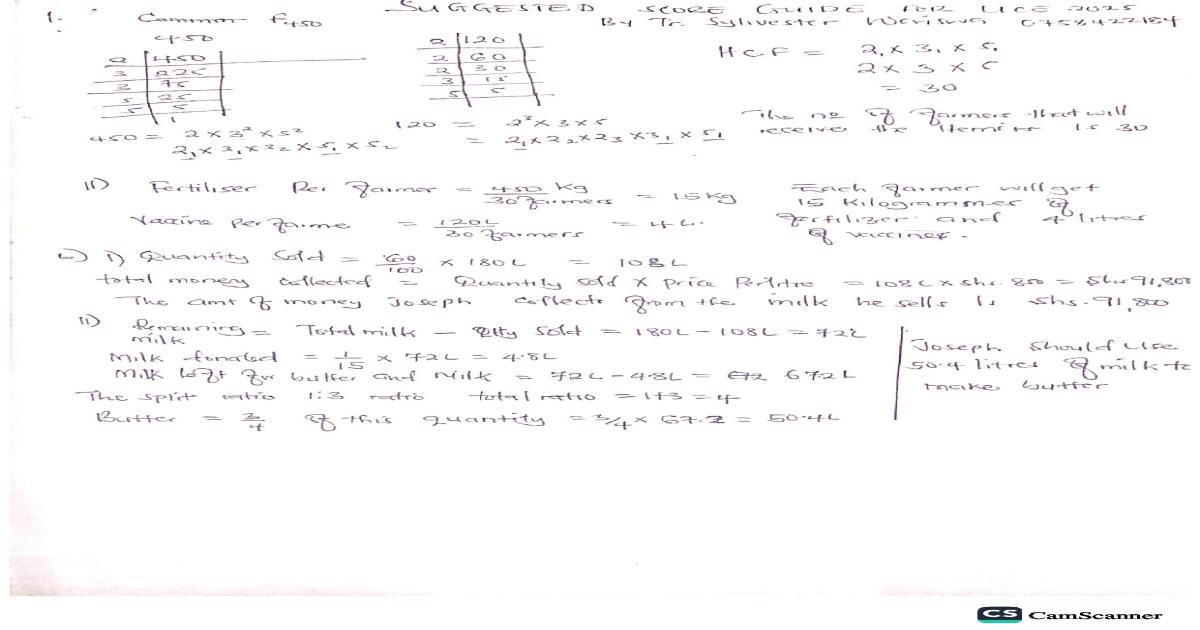 SUGGESTED SCORE GUIDE FOR UCE 2025
By Tr. Sylivester 0758422184
1. Common F450
450
2 | 450
3 | 225
3 | 75
5 | 25
5 | 5
1
2 | 120
2 | 60
2 | 30
3 | 15
5 | 5
HCF = 2₁ x 3₁ x 5₁
2 x 3 x 5
= 30
450 = 2 x 3² x 5²
2₁ x 3₁ x 3₂ x 5₁ x 5₂
120 = 2³ x 3 x 5
= 2₁ x 2₂ x 2₃ x 3₁ x 5₁
The no of farmers that will
receive the items is 30
ii) Fertiliser Per farmer = 450 kg / 30 farmers = 15 kg
Vaccine per farme = 120L / 30 farmers = 4L.
Each farmer will get
15 Kilogrammes of
fertilizer and 4 litres
of vaccines.
c) i) Quantity Sold = 60/100 x 180L = 108L
total money collected = Quantity sold x price Per litre = 108L x shs. 850 = Shs 91,800
The amt of money Joseph collects from the milk he sells is shs. 91,800
ii) Remaining milk = Total milk — Qty Sold = 180L - 108L = 72L
Milk donated = 1/15 x 72L = 4.8L
Milk left for butter and Milk = 72L - 4.8L = 672L
The split ratio 1:3 ratio total ratio = 1+3 = 4
Butter = 3/4 of this quantity = 3/4 x 67.2 = 50.4L
Joseph should use
50.4 litres of milk to
make butter
CS CamScanner